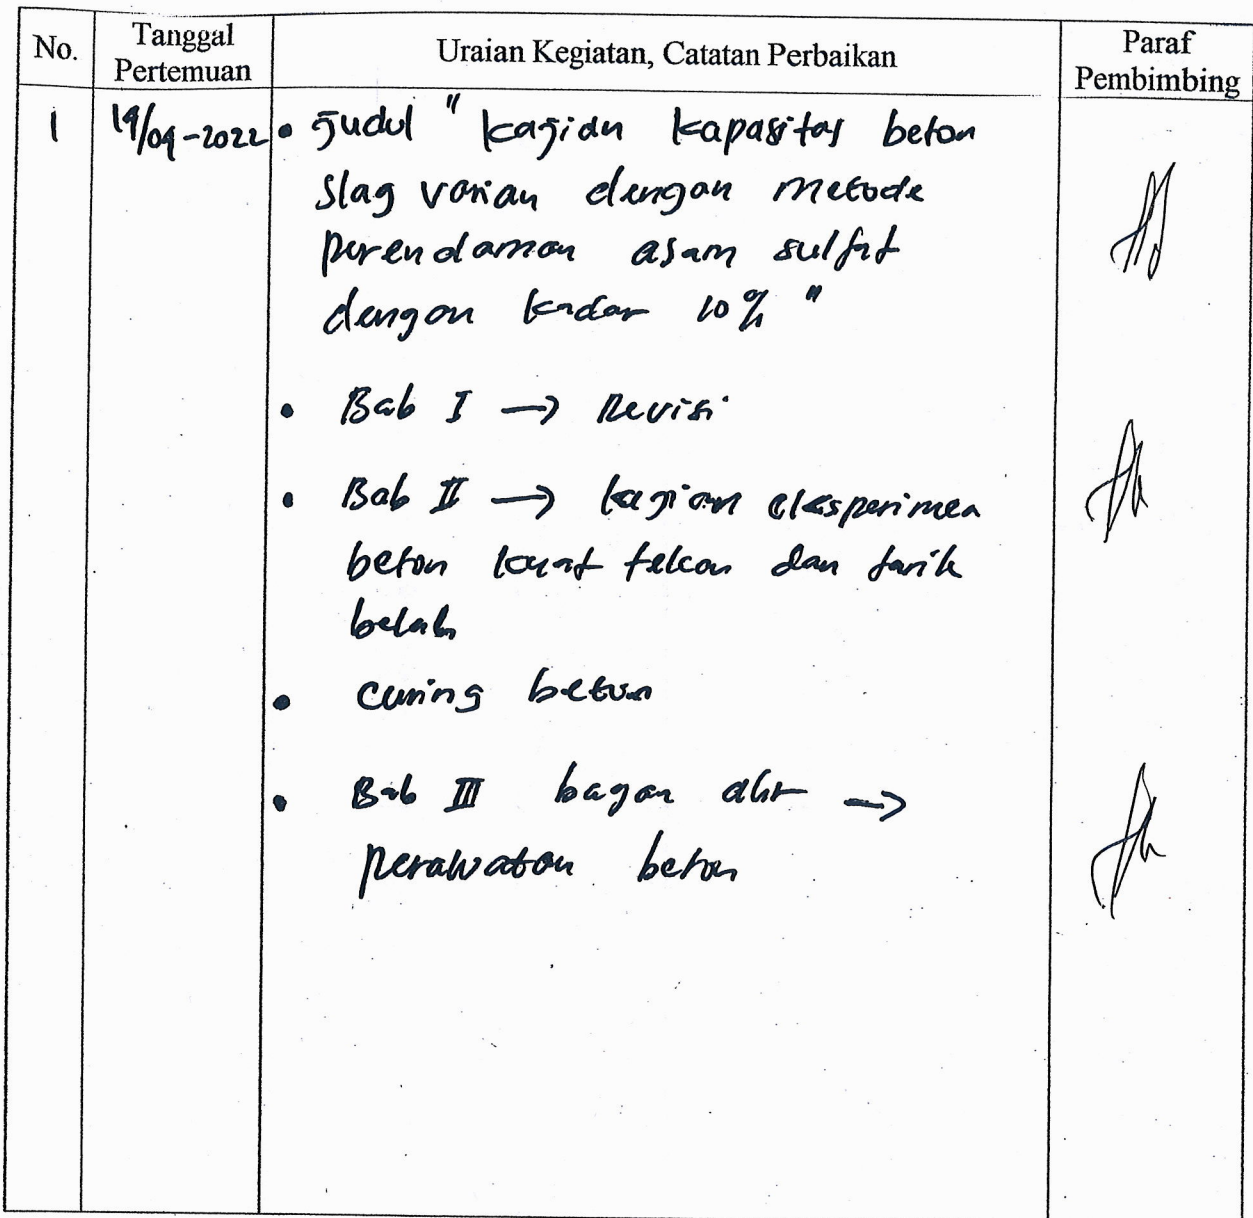 No.
Tanggal
Pertemuan
Uraian Kegiatan, Catatan Perbaikan
Paraf
Pembimbing
1
19/09-2022
• Judul " kajian kapasitas beton
slag varian dengan metode
perendaman asam sulfat
dengan kadar 10% "
• Bab I → Revisi
• Bab II → kajian eksperimen
beton kuat tekan dan tarik
belah
• curing beton
• Bab III bagan alir →
perawatan beton